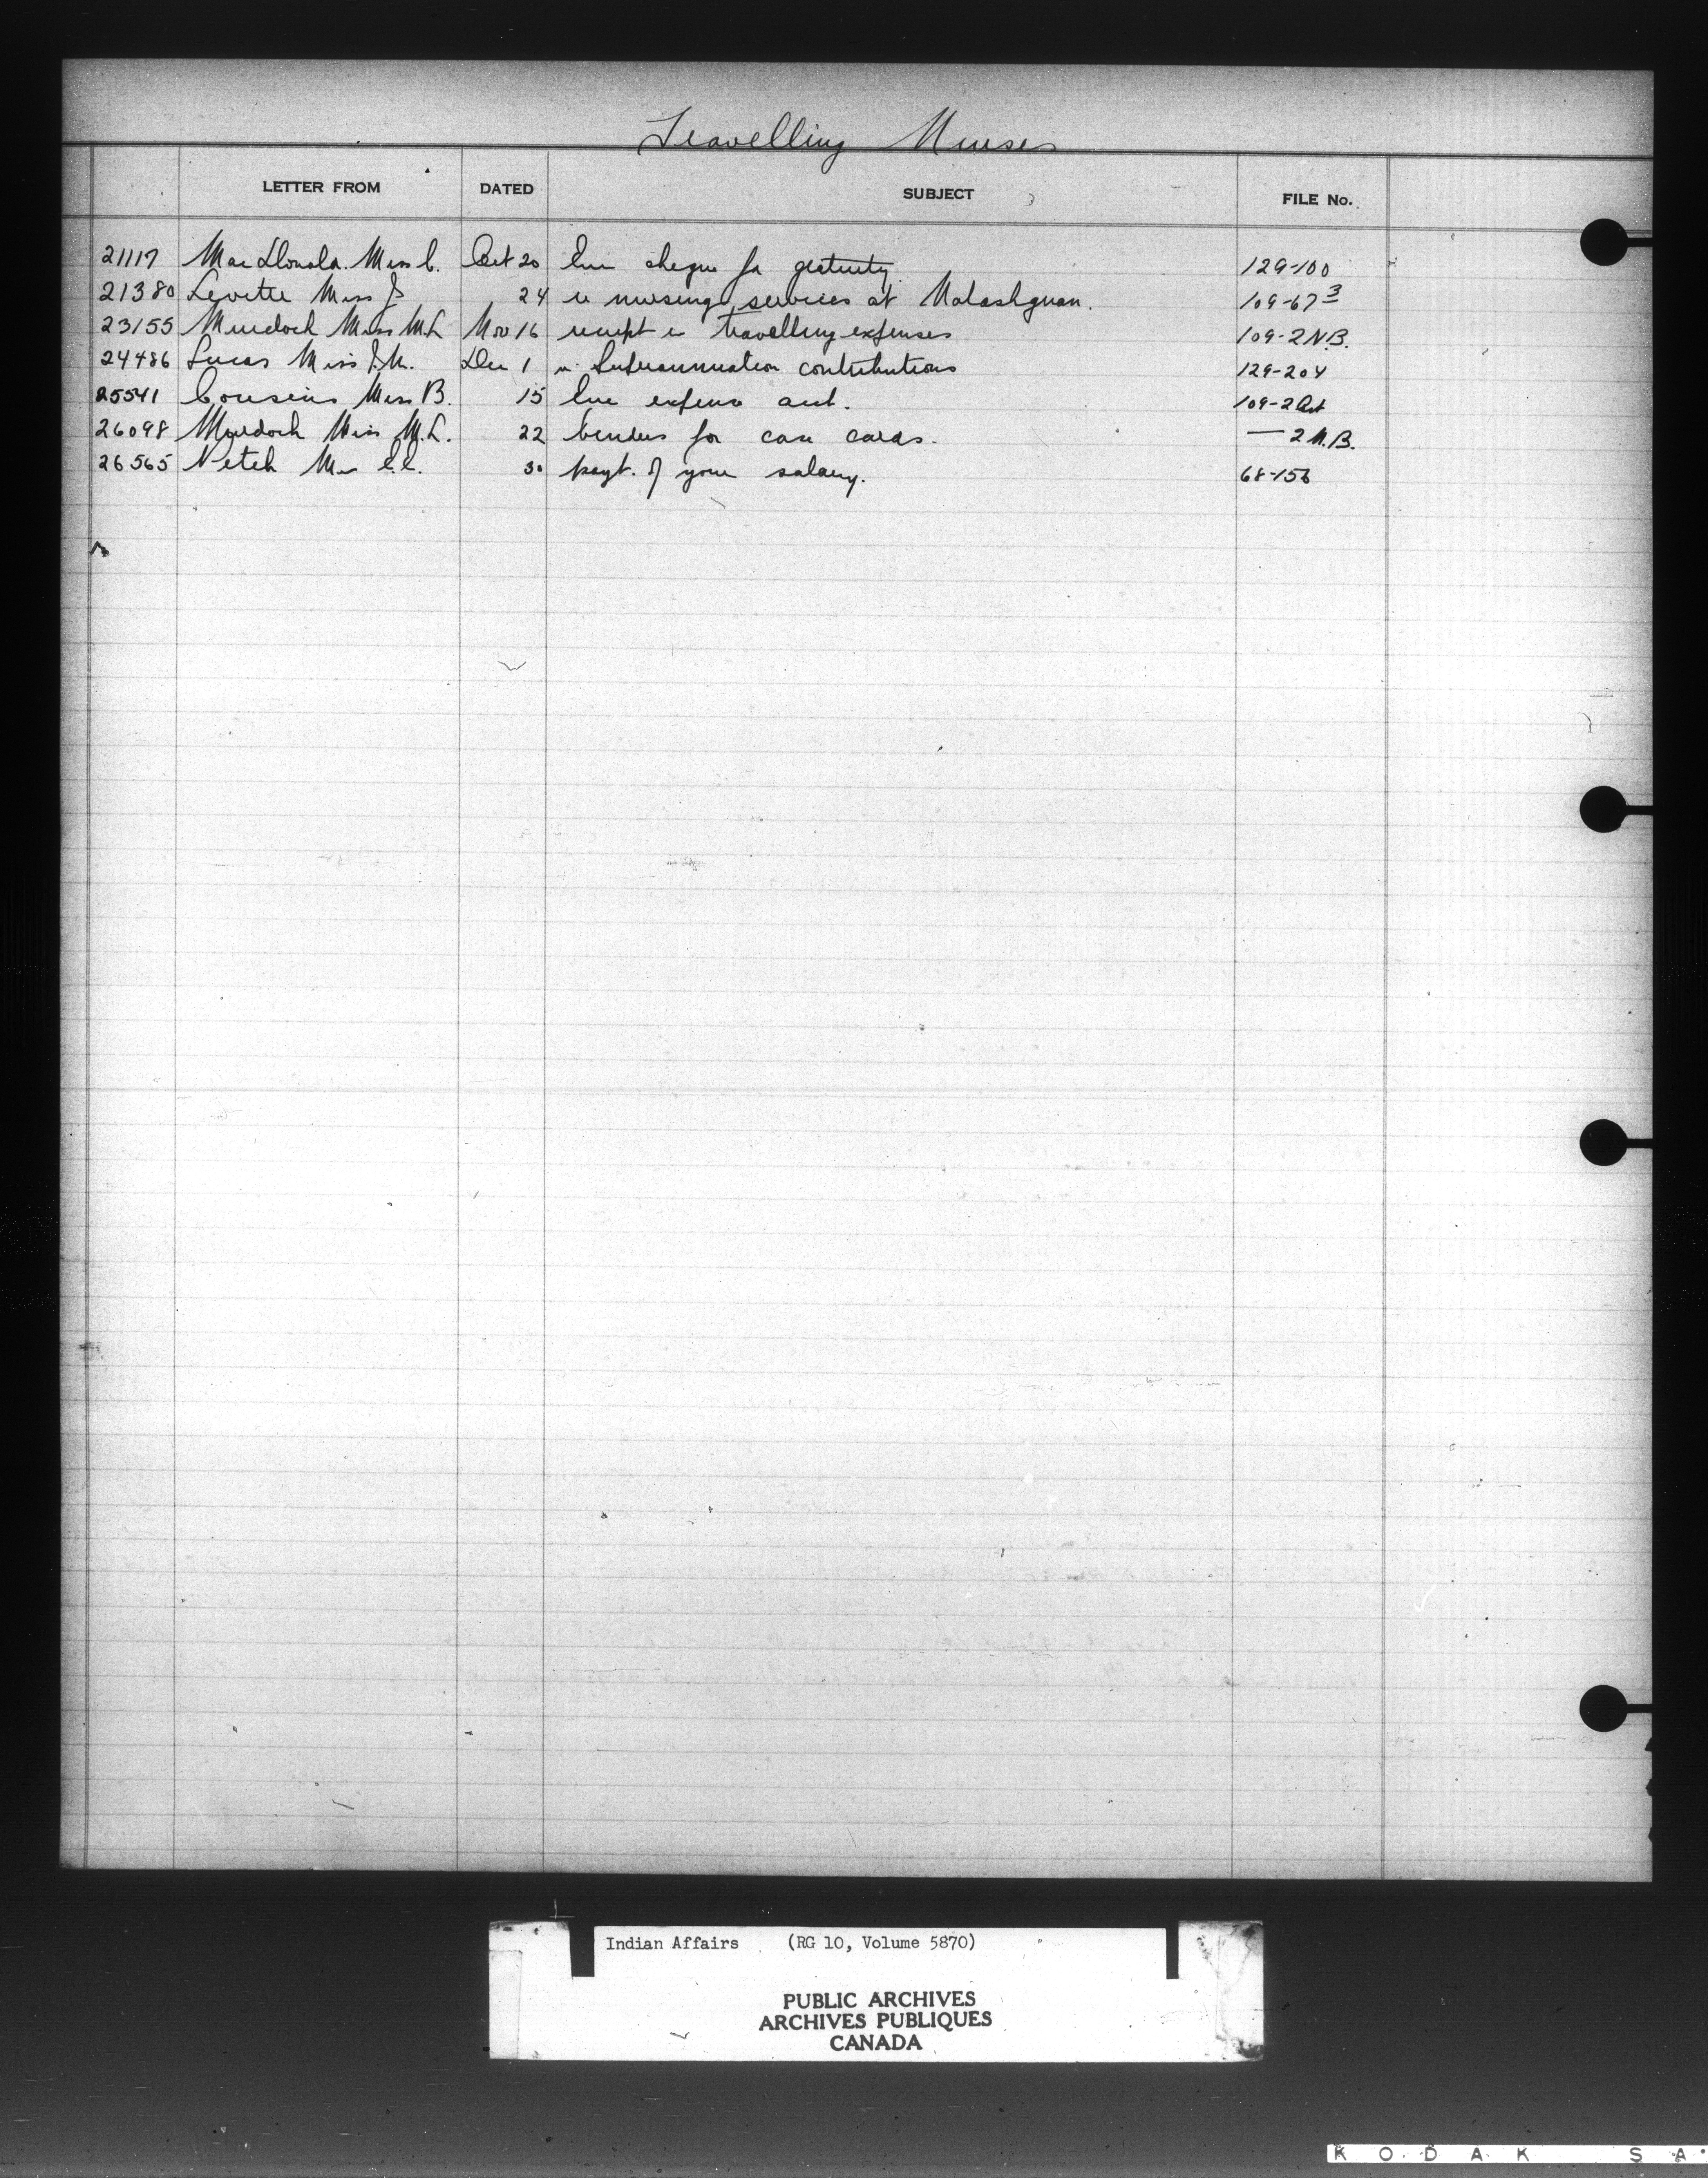 Travelling Nurses
LETTER FROM DATED SUBJECT FILE No.
21117 MacDonald. Miss C. Oct 20 Enc cheque for gratuity 129-100
21380 Levette Miss J 24 re nursing services at Natashquan. 109-67 3
23155 Murdoch Miss M.L Nov 16 receipt re travelling expenses 109-2 N.B.
24486 Lucas Miss J.M. Dec 1 re Superannuation contributions 129-204
25541 Cousins Miss B. 15 Enc expense acct. 109-2
26098 Murdoch Miss M.L. 22 binders for case cards. — 2 N.B.
26565 Miss C.C. 30 payt. of your salary. 68-156
Indian Affairs (RG 10, Volume 5870)
PUBLIC ARCHIVES
ARCHIVES PUBLIQUES
CANADA
KODAK SA